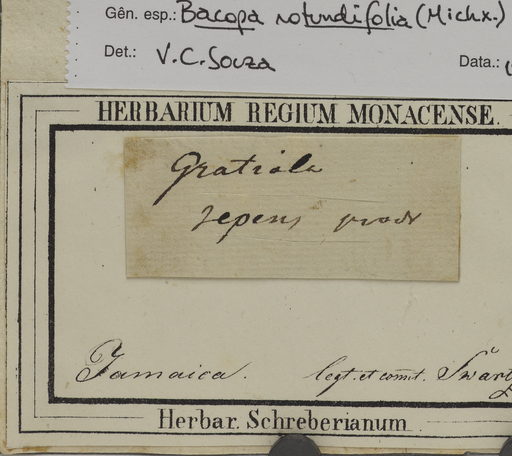 Gên. esp.: Bacopa rotundifolia (Michx.)
Det.: V.C. Souza Data.:
HERBARIUM REGIUM MONACENSE.
Gratiola
repens prodr
Jamaica. legt. et comt. Swartz
Herbar. Schreberianum